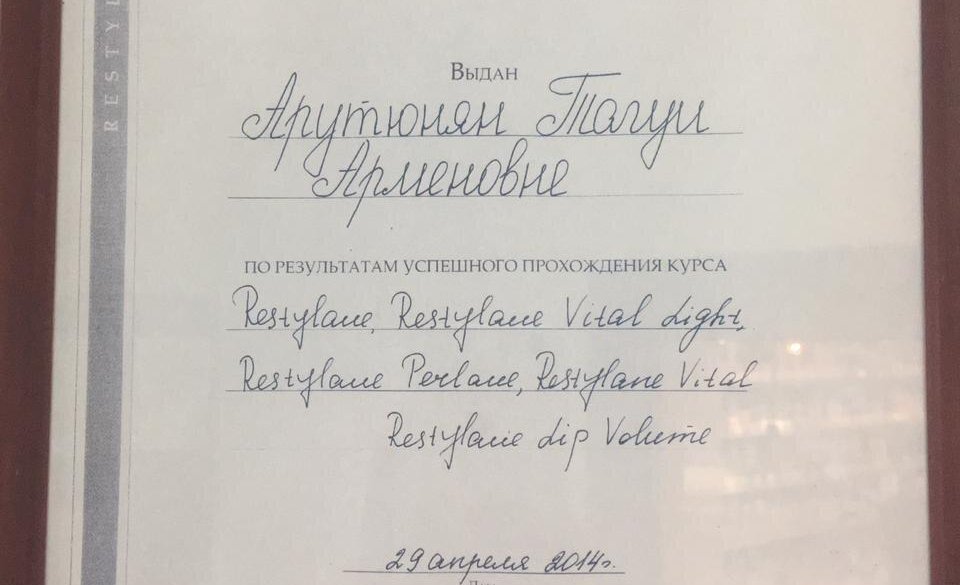 RESTYL
Выдан
Арутюнян Тагуи
Арменовне
ПО РЕЗУЛЬТАТАМ УСПЕШНОГО ПРОХОЖДЕНИЯ КУРСА
Restylane, Restylane Vital Light,
Restylane Perlane, Restylane Vital
Restylane Lip Volume
29 апреля 2014г.